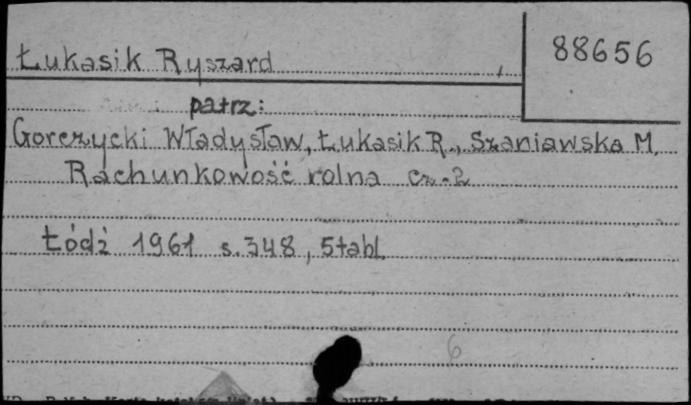 Łukasik Ryszard
88656
patrz:
Gorczycki Władysław, Łukasik R., Szaniawska M.
Rachunkowość rolna cz. 2
Łódź 1961 s. 348, 5 tabl.
6